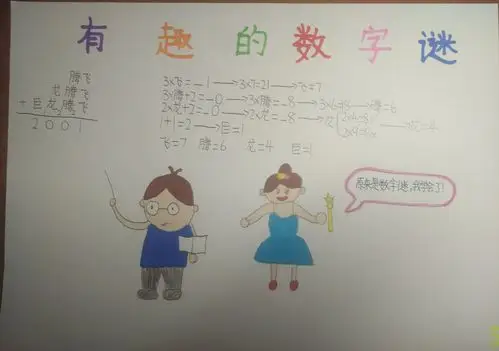 有趣的数字谜
腾飞
龙腾飞
+巨龙腾飞
2001
3×飞=_1→3×7=21→飞=7
3×腾+2=_0→3×腾=_8→3×6=18→腾=6
2×龙+2=_0→2×龙=_8→龙{2×4=8
→龙=4
1+1=2→巨=1
飞=7 腾=6 龙=4 巨=1
原来是数字谜,我学会了!